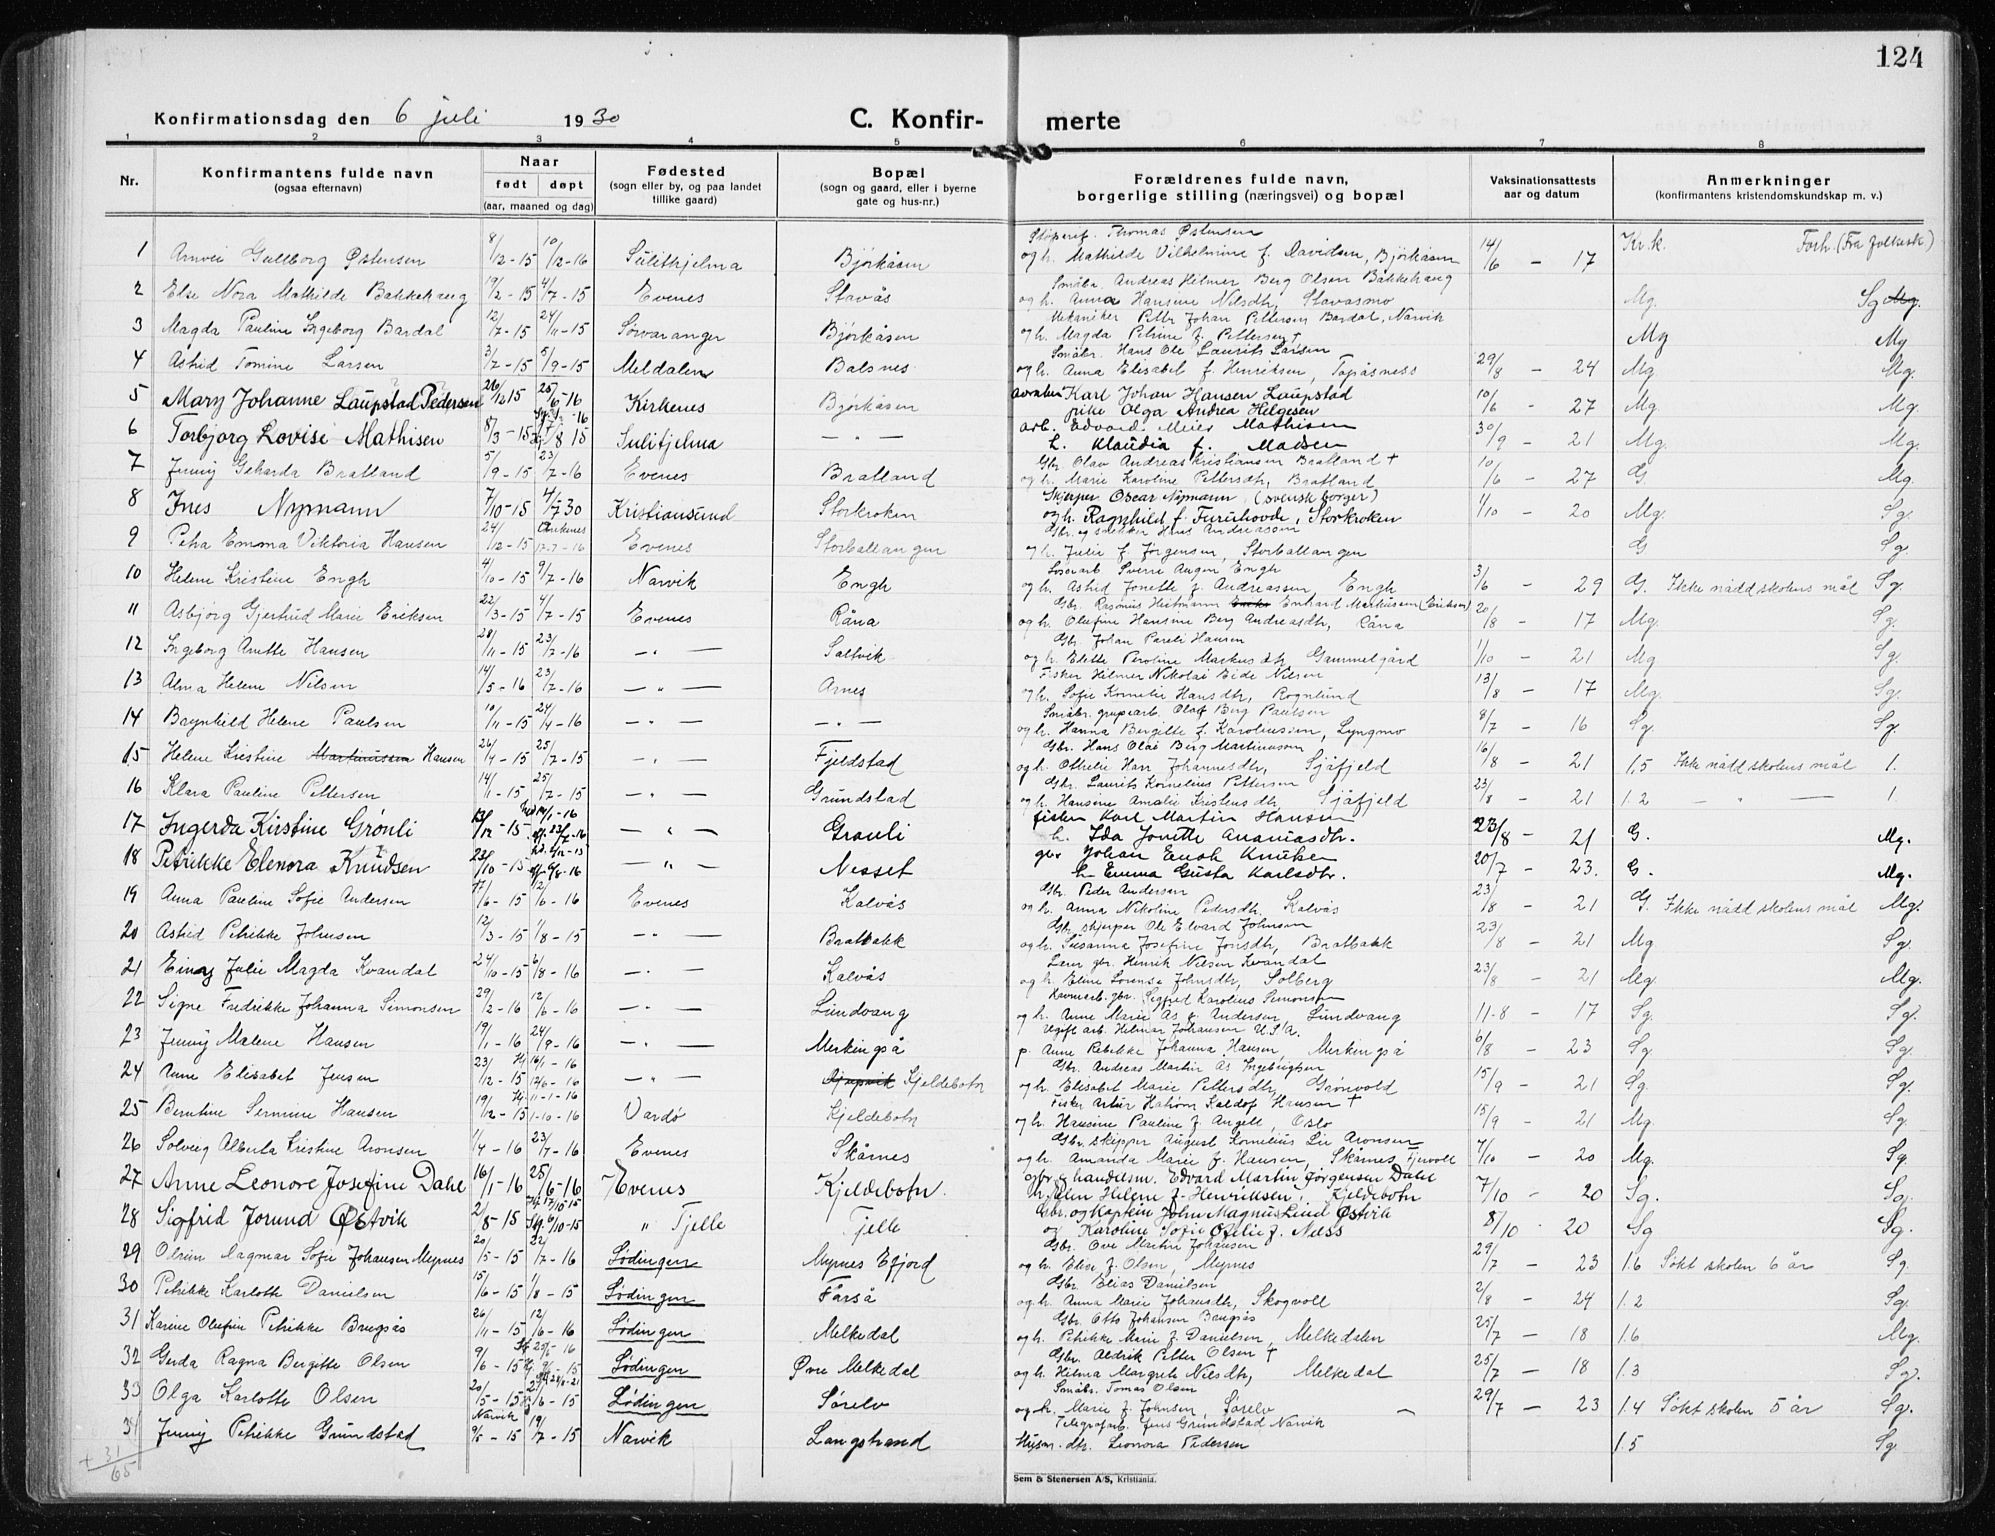 124
Konfirmationsdag den 6 juli 1930
C. Konfir- merte
1 2 3 4 5 6 7 8
Nr.
Konfirmantens fulde navn
(ogsaa efternavn)
Naar
født døpt
(aar, maaned og dag)
Fødested
(sogn eller by, og paa landet
tillike gaard)
Bopæl
(sogn og gaard, eller i byerne
gate og hus-nr.)
Forældrenes fulde navn,
borgerlige stilling (næringsvei) og bopæl
Vaksinationsattests
aar og datum
Anmerkninger
(konfirmantens kristendomskundskap m. v.)
Thomas Østensen
1 Gullborg Østensen 8/12-15 10/12-16 Sulithjelma Bjørkåsen og h. Mathilde Vilhelmine f. Davidsen, Bjørkåsen 14/6 - 17 Kr.k. Forh. (Fra folkesk)
Småbr. Andreas Helmer Berg Olsen Bakkehaug
2 Else Nora Mathilde Bakkehaug 19/2-15 4/7-15 Evenes Stavås og h. Anna Hansine Nilsdtr, Stavasmo Mg. Sg Mg.
Mekaniker Petter Johan Pettersen Bardal, Narvik
3 Magda Pauline Ingeborg Bardal 12/7-15 24/11-15 Sørvaranger Bjørkåsen og h. Magda Petrine f. Pettersen † Mg Mg
Småbr. Hans Ole Laurits Larsen
4 Astrid Tomine Larsen 3/7-15 5/9-15 Meldalen Balsnes og h. Anna Elisabet f. Henriksen, 29/8 - 24 Mg. Mg.
Karl Johan Hansen Laupstad
5 Mary Johanne Laupstad Pedersen 26/12 15 25/6-16 Kirkenes Bjørkåsen pike Olga Andrea Helgesen 10/6 - 27 Mg. Mg.
arb. Edvard Meier Mathisen
6 Torbjørg Lovise Mathisen 8/3-15 8 15 Sulitjelma - " - h. Klaudia f. Madsen 30/9 - 21 Mg. Mg.
Gbr Olav Andreas Kristiansen Bratland †
7 Jenny Geharda Bratland 5/9-15 23/7-16 Evenes Bratland og h. Marie Karoline Pettersdtr, Bratland 10/6 - 27 G. Mg.
Skjerper Oscar Nymann, (svensk borger)
8 Ines Nymann 7/10-15 4/7 30 Kristiansund Storkroken og h. Ragnhild f. Furuhovde, Storkroken 1/10 - 20 Mg. Sg.
Gbr. og snekker Hans Andreassen
9 Petra Emma Viktoria Hansen 24/12-15 Ankenes 17-7-16 Evenes Storballangen og h. Julie f. Jørgensen, Storballangen G Sg.
Sverre August Engh
10 Helene Kristine Engh 4/10-15 9/7-16 Narvik Engh og h. Astrid Jonette f. Andreassen, Engh 3/6 - 29 G. Ikke nådd skolens mål Sg.
Gbr. Rasmus Heitmann Enhard Markussen (Eriksen)
11 Asbjørg Gjertrud Marie Eriksen 22/3-15 4/7-15 Evenes Råna og h. Olufine Hansine Berg Andreasdtr, Råna 20/8 - 17 Mg. Sg.
Gbr. Johan Pareli Hansen
12 Ingeborg Anette Hansen 28/11-15 23/7-16 - " - Saltvik og h. Elette Peroline Markusdtr, Gammelgård 1/10 - 21 Mg Sg.
Fisker Hilmer Nikolai Eide Nilsen
13 Alma Helene Nilsen 14/5-16 23/7-16 - " - Arnes og h. Sofie Kornelie Hansdtr, Rognlund 13/8 - 17 Mg. Sg.
Småbr. grubearb. Olaf Berg Paulsen
14 Ragnhild Helene Paulsen 10/11-15 24/4-16 - " - - " - og h. Hanna Bergitte f. Karoliussen, Lyngmo 8/7 - 16 Sg. Sg.
Gbr. Hans Olai Berg Martinussen
15 Helene Kristine Martinussen Hansen 26/4-15 25/7-15 - " - Fjeldstad og h. Othelie Johannesdtr, Sjåfjeld 16/8 - 21 1,5 Ikke nådd skolens mål 1.
Gbr. Laurits Kornelius Pettersen
16 Klara Pauline Pettersen 14/1-15 25/7-15 - " - Grundstad og h. Hansine Amalie Kristensdtr, Sjåfjeld 23/8 - 21 1.2 - " - 1.
fisker Karl Martin Hansen
17 Ingerda Kirstine Grønli 13/12-15 14/1-16 23/7-16 - " - Grønli h. Ida Jonette Ananiasdtr. 23/8 - 21 G. Mg.
gbr Johan Enok Knutsen
18 Petrikke Elenora Knudsen 23/10-15 6/8-16 - " - Nesset h. Emma Gusta Karlsdtr. 20/7 - 23. G. Mg.
Gbr. Peder Andersen
19 Anna Pauline Sofie Andersen 17/6-15 12/6-16 Evenes Kalvås og h. Anna Nikoline Pedersdtr, Kalvås 23/8 - 21 G. Ikke nådd skolens mål Mg.
Gbr. skjerper Ole Edvard Johnsen
20 Astrid Petrikke Johnsen 12/3-15 1/8-15 - " - Bratbakk og h. Susanna Josefine Jonsdtr, Bratbakk 23/8 - 21 Mg Sg.
Lærer gbr. Henrik Nilsen Kvandal
21 Einy Julie Magda Kvandal 24/10-15 6/8-16 - " - Kalvås og h. Eline Lorense Johnsdtr, Solberg 23/8 - 21 Mg. Mg.
gbr. Sigfred Karolius Simonsen
22 Signe Fredrikke Johanna Simonsen 29/2-16 12/6-16 - " - Lundvang og h. Anne Marie As f. Andersen, Lundvang 11-8 - 17 Sg. Sg.
Ugift arb. Helmar Johansen U.S.A.
23 Jenny Malene Hansen 19/1-16 24/9-16 - " - Merkingså p. Anne Rebekke Johanna Hansen, Merkingså 6/8 - 23 Sg. Sg.
Gbr. Andreas Martin Ås Ingebrigtsen
24 Anne Elisabet Jensen 23/12-15 Hj. 16/1-16 12/6-16 - " - Kjeldebotn og h. Elisabet Marie Pettersdtr, Grønvold 15/9 - 21 Sg. Sg.
Fisker Artur Kaldof Hansen †
25 Berntine Sermine Hansen 19/12-15 Hj. 11-1-16 1-10-16 Vardø Kjeldebotn og h. Hansine Pauline f. Angell, Oslo 15/9 - 21 Mg. Sg.
Gbr. skipper August Kornelius Lie Aronsen
26 Solveig Alberta Kristine Aronsen 1/4-16 23/7-16 Evenes Skårnes og h. Amanda Marie f. Hansen, Skårnes, Fjervoll 7/10 - 20 Mg. Sg.
gbr. g handelsm. Edvard Martin Jørgensen Dahl
27 Anne Leonore Josefine Dahl 16/1-16 25/6-16 Evenes Kjeldebotn. h. Helene f. Henriksen, Kjeldebotn 7/10 - 20 Sg. Sg.
Gbr. og Kaptein John Magnus Lund Østvik
28 Sigfrid Jorund Østvik 2/8-15 17/10 15 6/10-15 " Tjelle Tjelle og Karoline Sofie Otelie f. Næss 8/10 - 20 Sg Sg.
Gbr. Ove Martin Johansen
29 Dagmar Sofie Johansen Mynes 20/5-15 22/7-16 Lødingen Mynes Efjord og h. Elise f. Olsen, Mynes 29/7 - 23 1.6 Søkt skolen 6 år Sg.
Gbr Elias Danielsen
30 Petrikke Karlotte Danielsen 15/6-15 1/8-15 Lødingen Forså og h. Anna Marie Johansdtr, Skogvoll 2/8 - 24 1.2 Sg.
Gbr. Otto Johansen Brugsås
31 Karine Olufine Petrikke Brugsås 26/11-15 12/6-16 Lødingen Melkedal og h. Petrikke Marie f. Danielsen, Melkedalen 25/7 - 18 1.6 Mg.
Gbr. Aldrik Petter Olsen †
32 Gerda Ragna Bergitte Olsen 9/6-15 Lødingen Øvre Melkedal og h. Hilma Margrete Nilsdtr, Melkedal 25/7 - 18 1.3 Sg.
Småbr. Tomas Olsen
33 Olga Karlotte Olsen 20/5-15 /6-15 Lødingen Sørelv og h. Marie f. Johnsen, Sørelv 29/7 - 23 1.4 Søkt skolen 5 år Sg.
Telegrafarb. Jens Grundstad Narvik
34 Jenny Petrikke Grundstad Narvik 9/5-15 19/7-15 Narvik Langstrand Husm. dtr. Leonora Pedersen 1.5 Sg.
+ 31
65
Sem & Stenersen A/S, Kristiania.